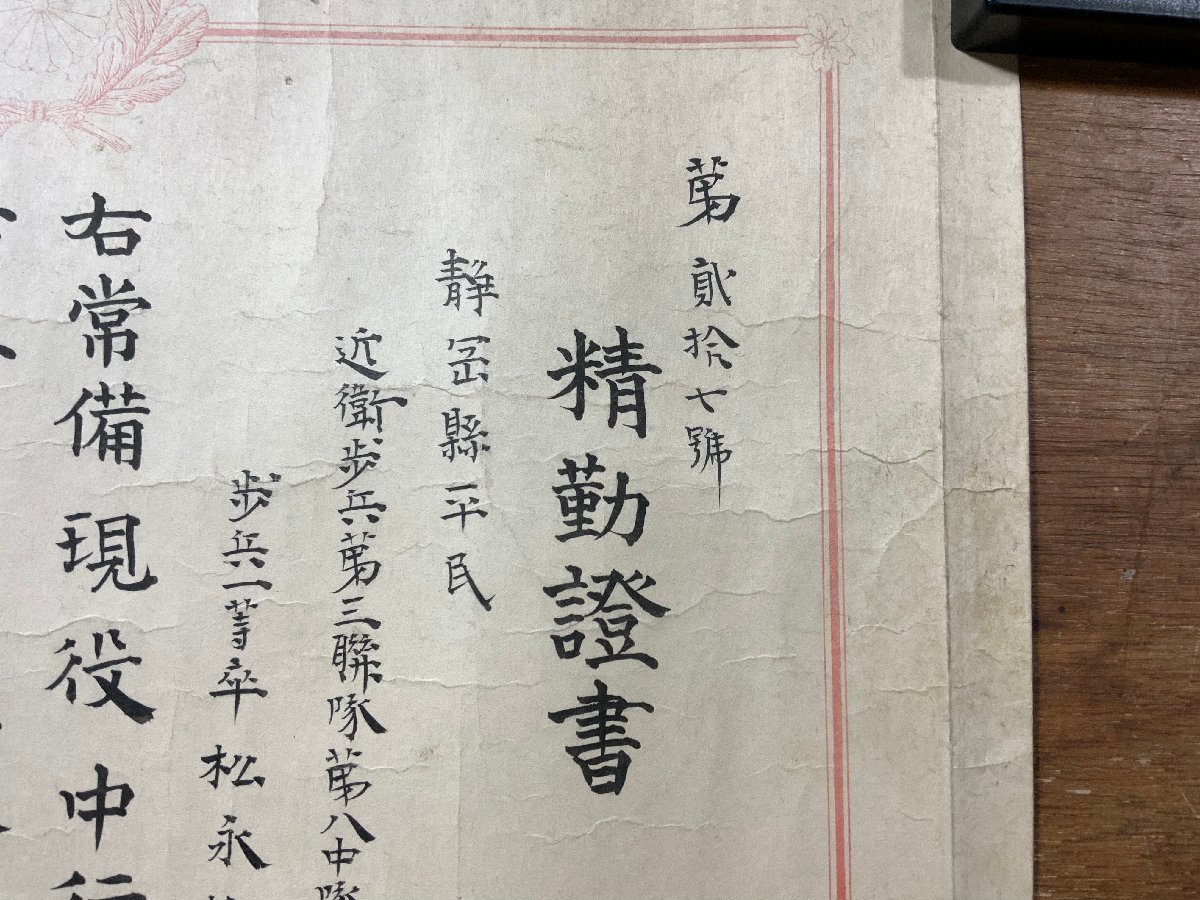 第貳拾七號
精勤證書
静岡縣平民
近衛歩兵第三聯隊第八中隊
歩兵一等卒 松永
右常備現役中行